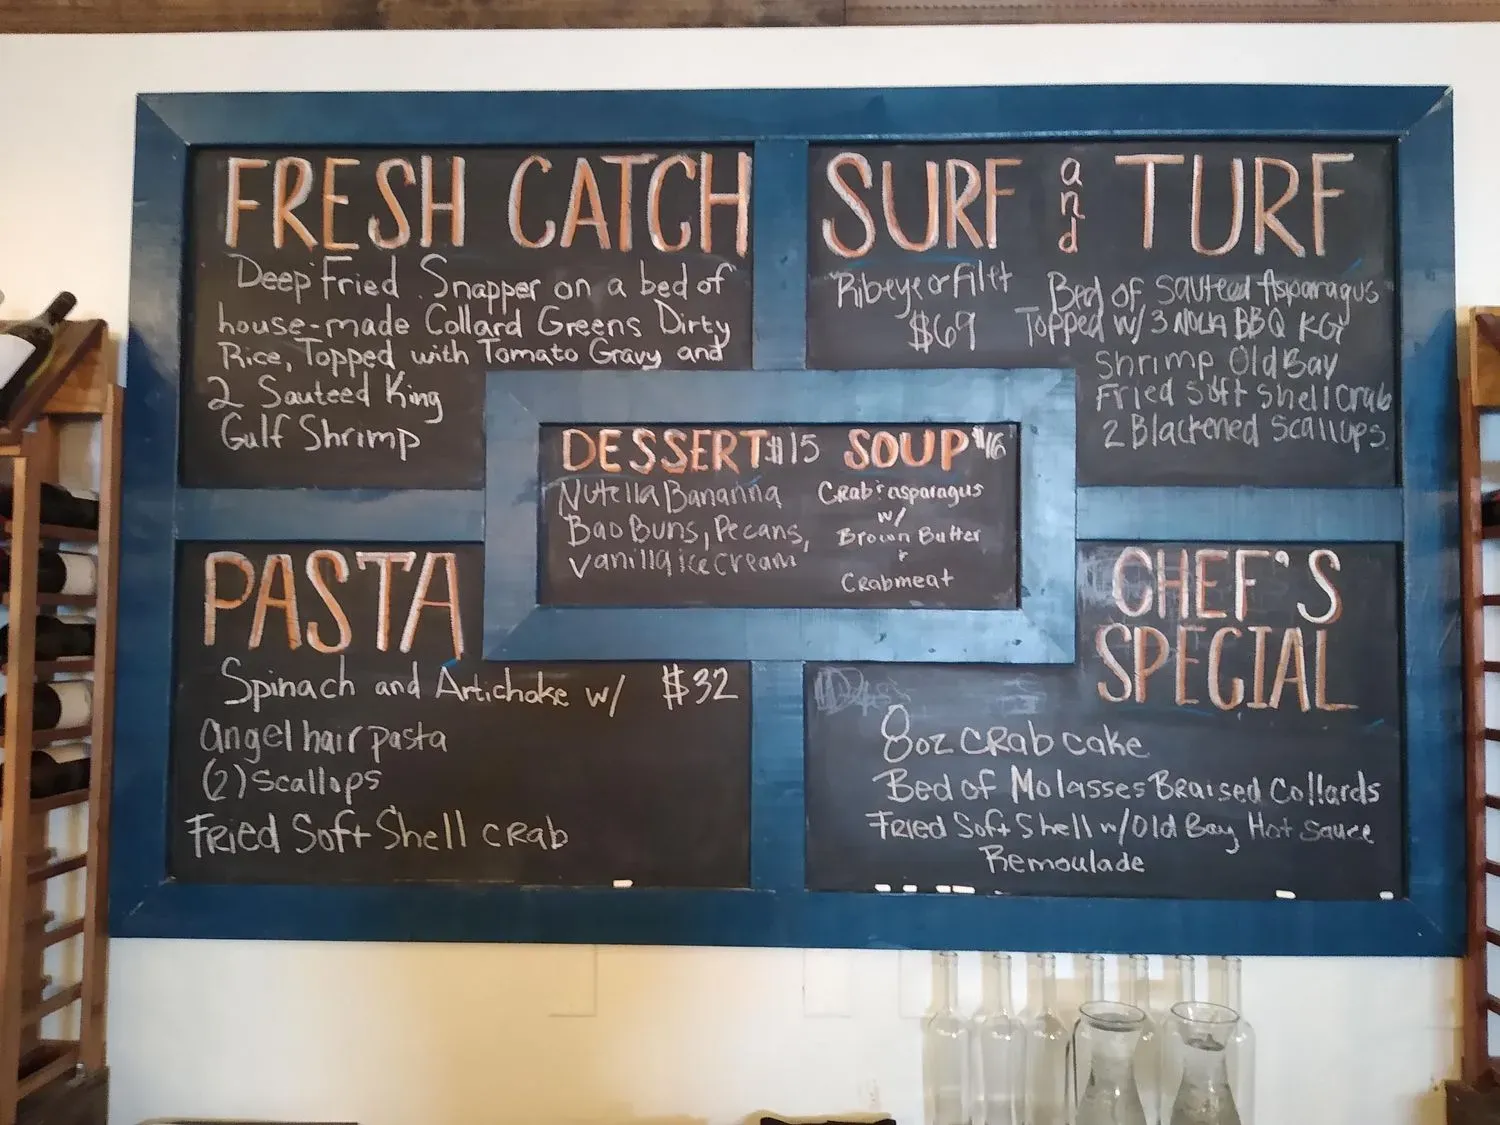 FRESH CATCH
Deep Fried Snapper on a bed of
house-made Collard Greens Dirty
Rice, Topped with Tomato Gravy and
2 Sauteed King
Gulf Shrimp
SURF and TURF
Ribeye or Filet
$69
Bed of Sauteed Asparagus
Topped w/ 3 NOLA BBQ KGF
Shrimp Old Bay
Fried Soft Shell Crab
2 Blackened Scallops
DESSERT $15
Nutella Bananna
Bao Buns, Pecans,
vanilla ice cream
SOUP $16
Crab & asparagus
w/
Brown Butter
+
Crabmeat
PASTA
Spinach and Artichoke w/ $32
angel hair pasta
(2) Scallops
Fried Soft Shell CRab
CHEF'S
SPECIAL
8oz CRab cake
Bed of Molasses BRaised Collards
Fried Soft Shell w/ Old Bay Hot Sauce
Remoulade